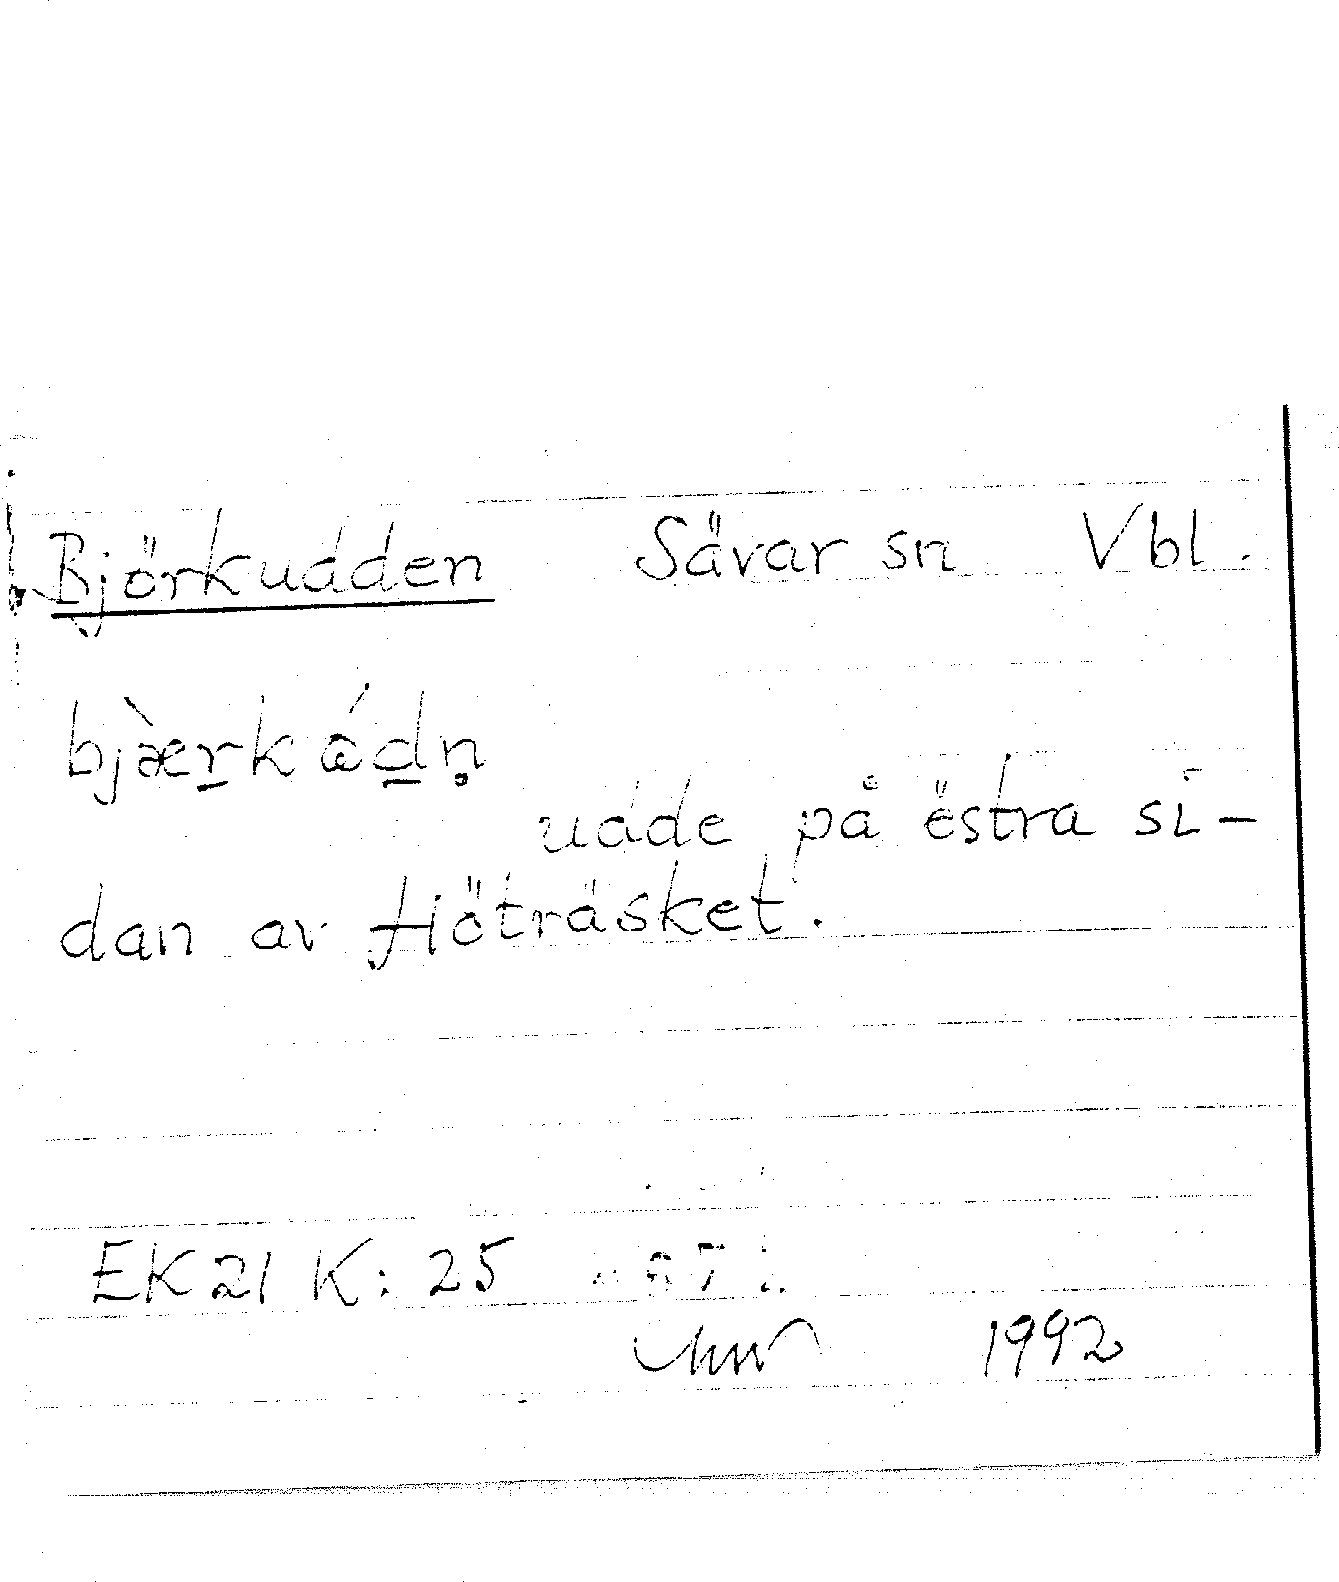 Björkudden Sävar sn Vbl.
bjæ̀r̲kǻd̲n̥
udde på östra si-
dan av Höträsket.
EK21 K: 25
1992